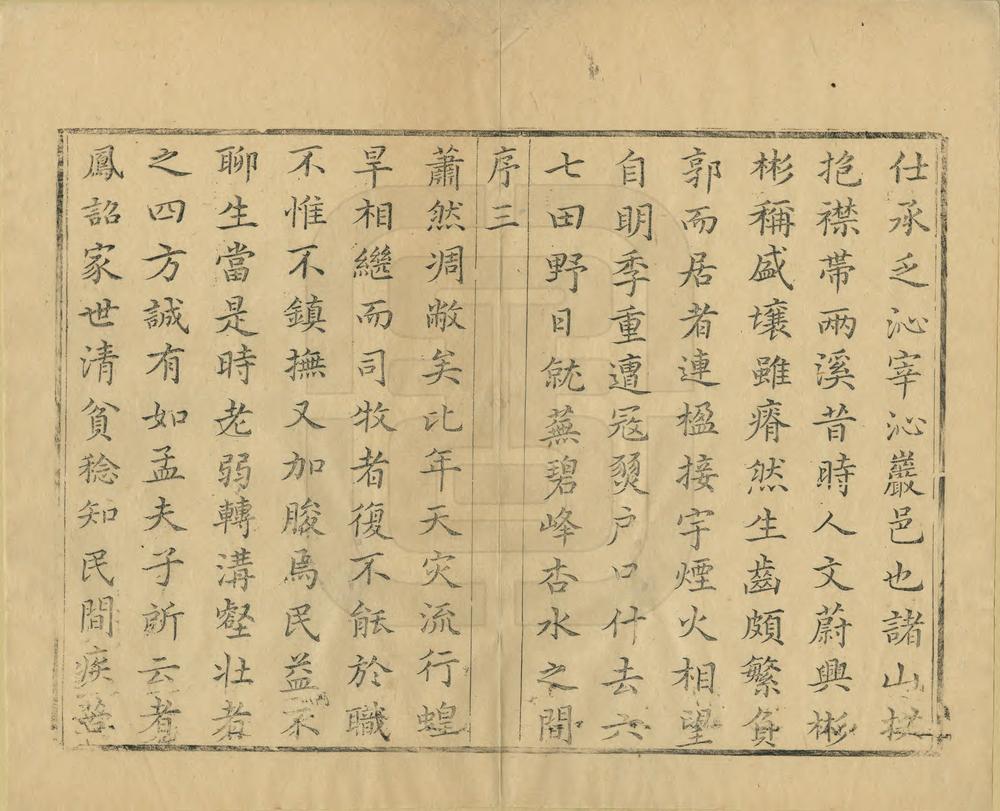 仕承乏沁宰沁巖邑也諸山拱
抱襟帶兩溪昔時人文蔚興彬
彬稱盛壤雖瘠然生齒頗繁負
郭而居者連楹接宇煙火相望
自明季重遭寇燹户口什去六
七田野日就蕪碧峰杏水之間
序三
蕭然凋敝矣比年天灾流行蝗
旱相繼而司牧者復不能於職
不惟不鎮撫又加朘焉民益不
聊生當是時老弱轉溝壑壯者
之四方誠有如孟夫子所云者
鳳詔家世清貧稔知民間疾苦